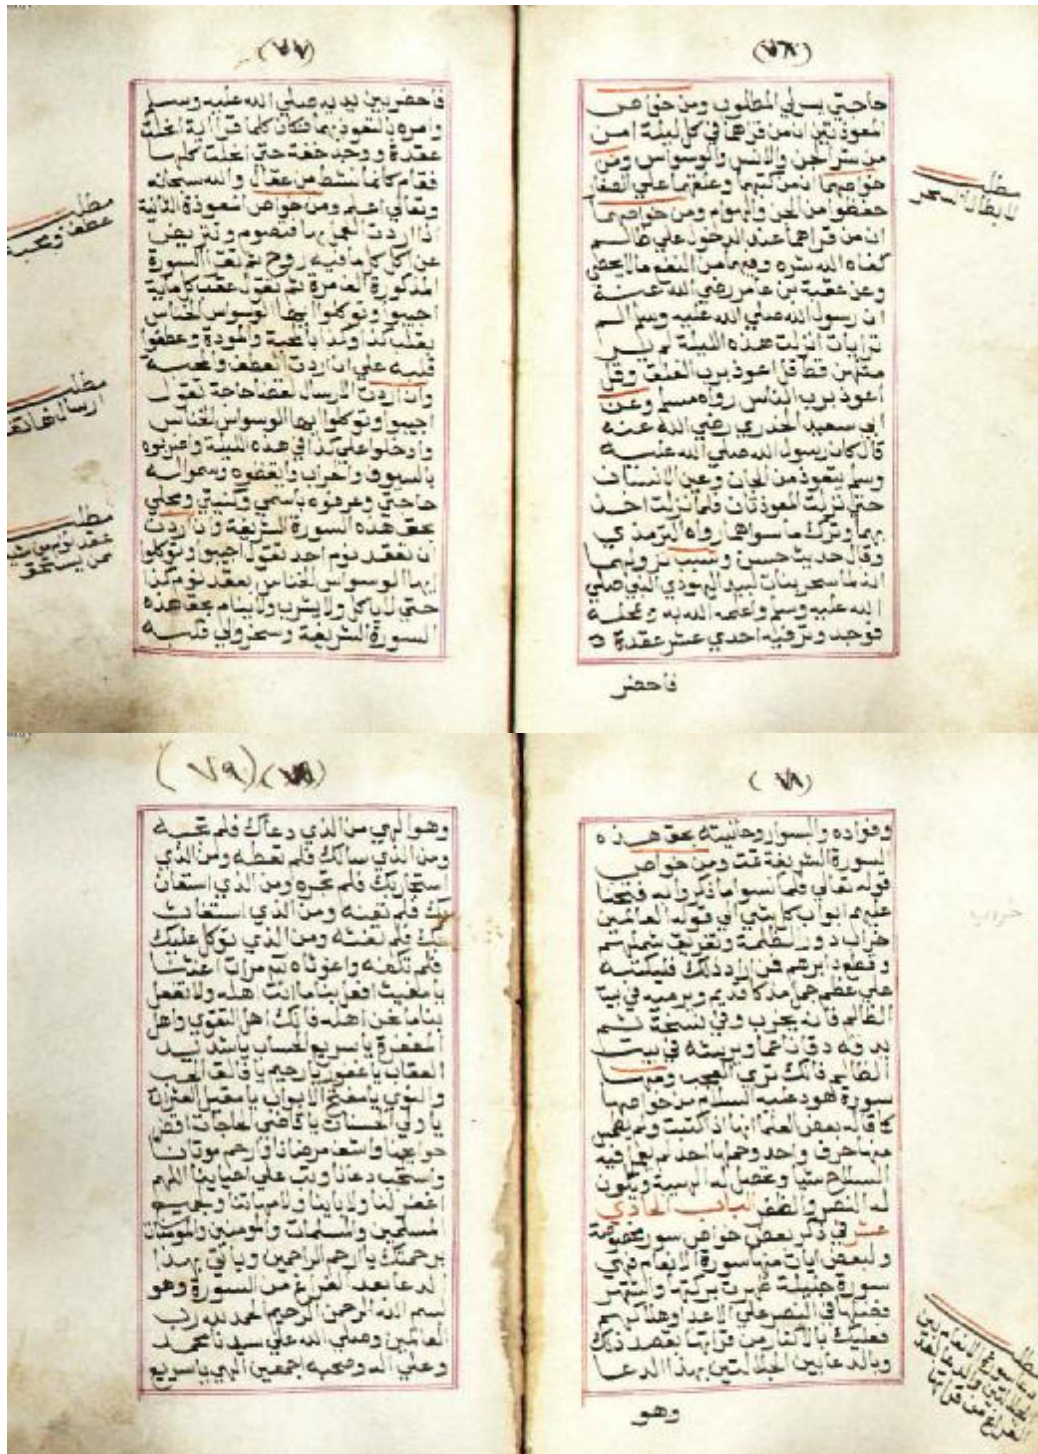 (٧٦)
حاجتي يسر لي المطلوب ومن خواص
المعوذتين ان من قراهما في كل ليلة امن
من شر الجن والانس والوسواس ومن
خواصهما ان من كتبهما وعلقهما علي الصغار
حفظوا من الجن والهوام ومن خواصهما
ان من قراهما عند الدخول علي ظالم
كفاه الله شره وفيهما من النفع ما لا يحصي
وعن عقبة بن عامر رضي الله عنه
ان رسول الله صلي الله عليه وسلم الم
تر ايات انزلت هذه الليلة لم ير
مثلهن قط قل اعوذ برب الفلق وقل
اعوذ برب الناس رواه مسلم وعن
ابي سعيد الخدري رضي الله عنه
قال كان رسول الله صلي الله عليه
وسلم يتعوذ من الجان وعين الانسان
حتي نزلت المعوذتان فلما نزلت اخذ
بهما وترك ما سواهما رواه الترمذي
وقال حديث حسن وسبب نزولهما
انه لما سحر بنات لبيد اليهودي النبي صلي
الله عليه وسلم واعلمه الله به وبمحله
فوجد وتر فيه احدي عشر عقدة
فاحضر
مطلب
لابطال السحر
(٧٧)
فاحضر بين يديه صلي الله عليه وسلم
وامره بالتعوذ بهما فكان كلما قرا اية انحلت
عقدة ووجد خفة حتي انحلت كلها
فقام كانما نشط من عقال والله سبحانه
وتعالي اعلم ومن خواص المعوذة الثانية
اذا اردت العمل بها فتصوم وتتريض
عن اكل كل ما فيه روح ثم تقرا السورة
المذكورة الف مرة ثم تقول عقب كل ماية
اجيبوا وتوكلوا ايها الوسواس الخناس
بقلب كذا وكذا بالمحبة والمودة وعطفوا
قلبه علي ان اردت العطف والمحبة
وان اردت الارسال لقضا حاجة تقول
اجيبوا وتوكلوا ايها الوسواس الخناس
وادخلوا علي كذا في هذه الليلة واضربوه
بالسيوف والحراب وايقظوه وسموا له
حاجتي وعرفوه باسمي وكنيتي ومحلي
بحق هذه السورة الشريفة وان اردت
ان تعقد نوم احد تقول اجيبوا وتوكلوا
ايها الوسواس الخناس بعقد نوم كذا
حتي لا ياكل ولا يشرب ولا ينام بحق هذه
السورة الشريفة وسخروا لي قلبه
مطلب
عطف ومحبة
مطلب
ارسال هاتف
مطلب
عقد نوم
من يستحق
(٧٨)
وفواده والبسوا روحانيته بحق هذه
السورة الشريفة تمت ومن خواص
قوله تعالي فلما نسوا ما ذكروا به فتحنا
عليهم ابواب كل شي الي قوله العالمين
خراب دور الظلمة وتفريق شملهم
وقطع دابرهم فمن اراد ذلك فليكتبه
علي عظم جمل مذكا قديم ويرميه في بيت
الظالم فانه يخرب وفي نسخة ثم
يدقه دقا ناعما ويرشه في بيت
الظالم فانك تري العجب ومنها
سورة هود عليه السلام من خواصها
كما قاله بعض العلما انها اذا كتبت ولم يطمس
منها حرف واحد وحملها احد لم يعمل فيه
السلاح شيا وتحصل له الهيبة ويكون
له النصر والظفر الباب الحادي
عشر في ذكر بعض خواص سور مخصوصة
ولبعض ايات منها سورة الانعام فهي
سورة جليلة ظهرت بركتها واشتهر
فضلها في النصر علي الاعدا وهلاكهم
فعليك بالاكثار من قراتها بقصد ذلك
وبالدعا بين الجلالتين بهذا الدعا
وهو
مطلب
دعا سورة الانعام بين
الجلالتين والدعا بعد
الفراغ من قراتها
(٧٩)
وهو الهي من الذي دعاك فلم تجبه
ومن الذي سالك فلم تعطه ومن الذي
استجار بك فلم تجره ومن الذي استعان
بك فلم تعنه ومن الذي استغاث
بك فلم تغثه ومن الذي توكل عليك
فلم تكفه واغوثاه ثم مرات اغثنا
يا مغيث افعل بنا ما انت اهله ولا تفعل
بنا ما نحن اهله فانك اهل التقوي واهل
المغفرة يا سريع الحساب يا شديد
العقاب يا غفور يا رحيم يا فالق الحب
والنوي يا مفتح الابواب يا مقيل العثرات
يا ولي الحسنات يا قاضي الحاجات اقض
حوايجنا واشف مرضانا وارحم موتانا
واستجب دعانا وتب علي احيائنا اللهم
اغفر لنا ولابائنا ولامهاتنا وجميع
المسلمين والمسلمات والمومنين والمومنات
برحمتك يا ارحم الراحمين ويا تي بهذا
الدعا بعد الفراغ من السورة وهو
بسم الله الرحمن الرحيم الحمد لله رب
العالمين وصلي الله علي سيدنا محمد
وعلي اله وصحبه اجمعين الهي يا سريع